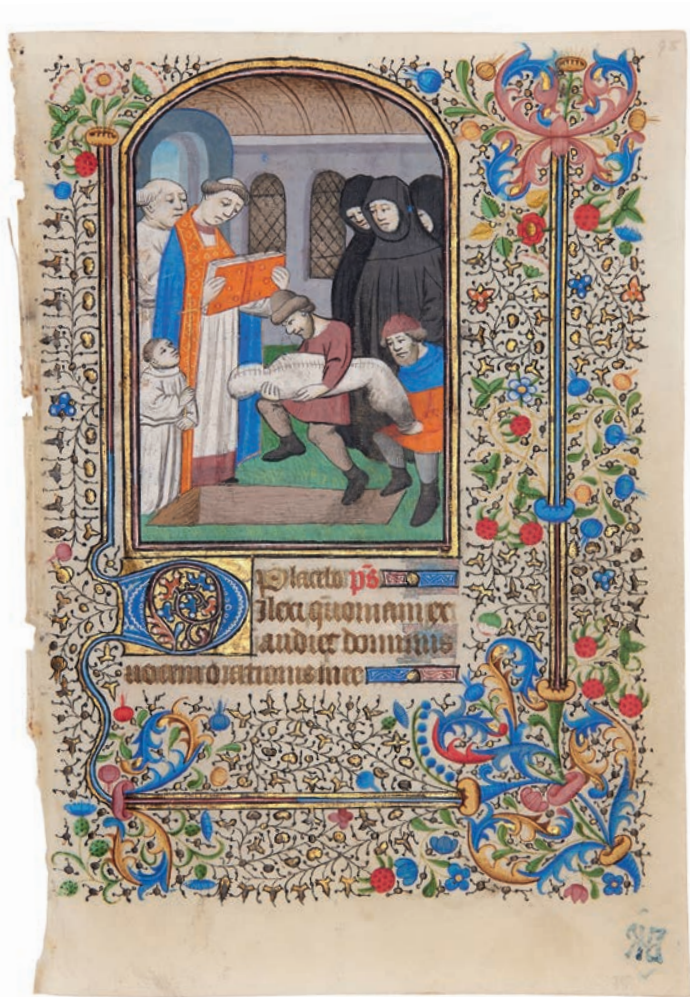 Placebo p̄s
Dilexi quoniam ex
audiet dominus
uocem orationis mee